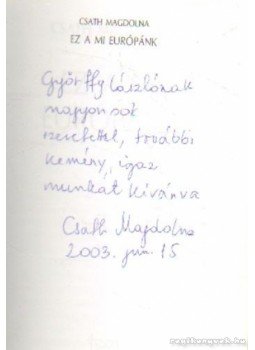 CSATH MAGDOLNA
EZ A MI EURÓPÁNK
Győrffy Lászlónak
nagyon sok
szeretettel, további
kemény, igaz
munkát kívánva
Csath Magdolna
2003. jún. 15
regikonyvek.hu